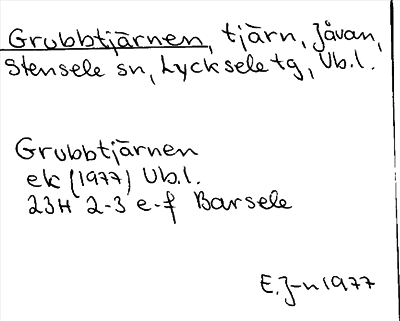 Grubbtjärnen, tjärn, Jåvan,
Stensele sn, Lycksele tg, Vb.l.
Grubbtjärnen
ek (1977) Vb.l.
23H 2-3 e-f Barsele
E.J-n 1977